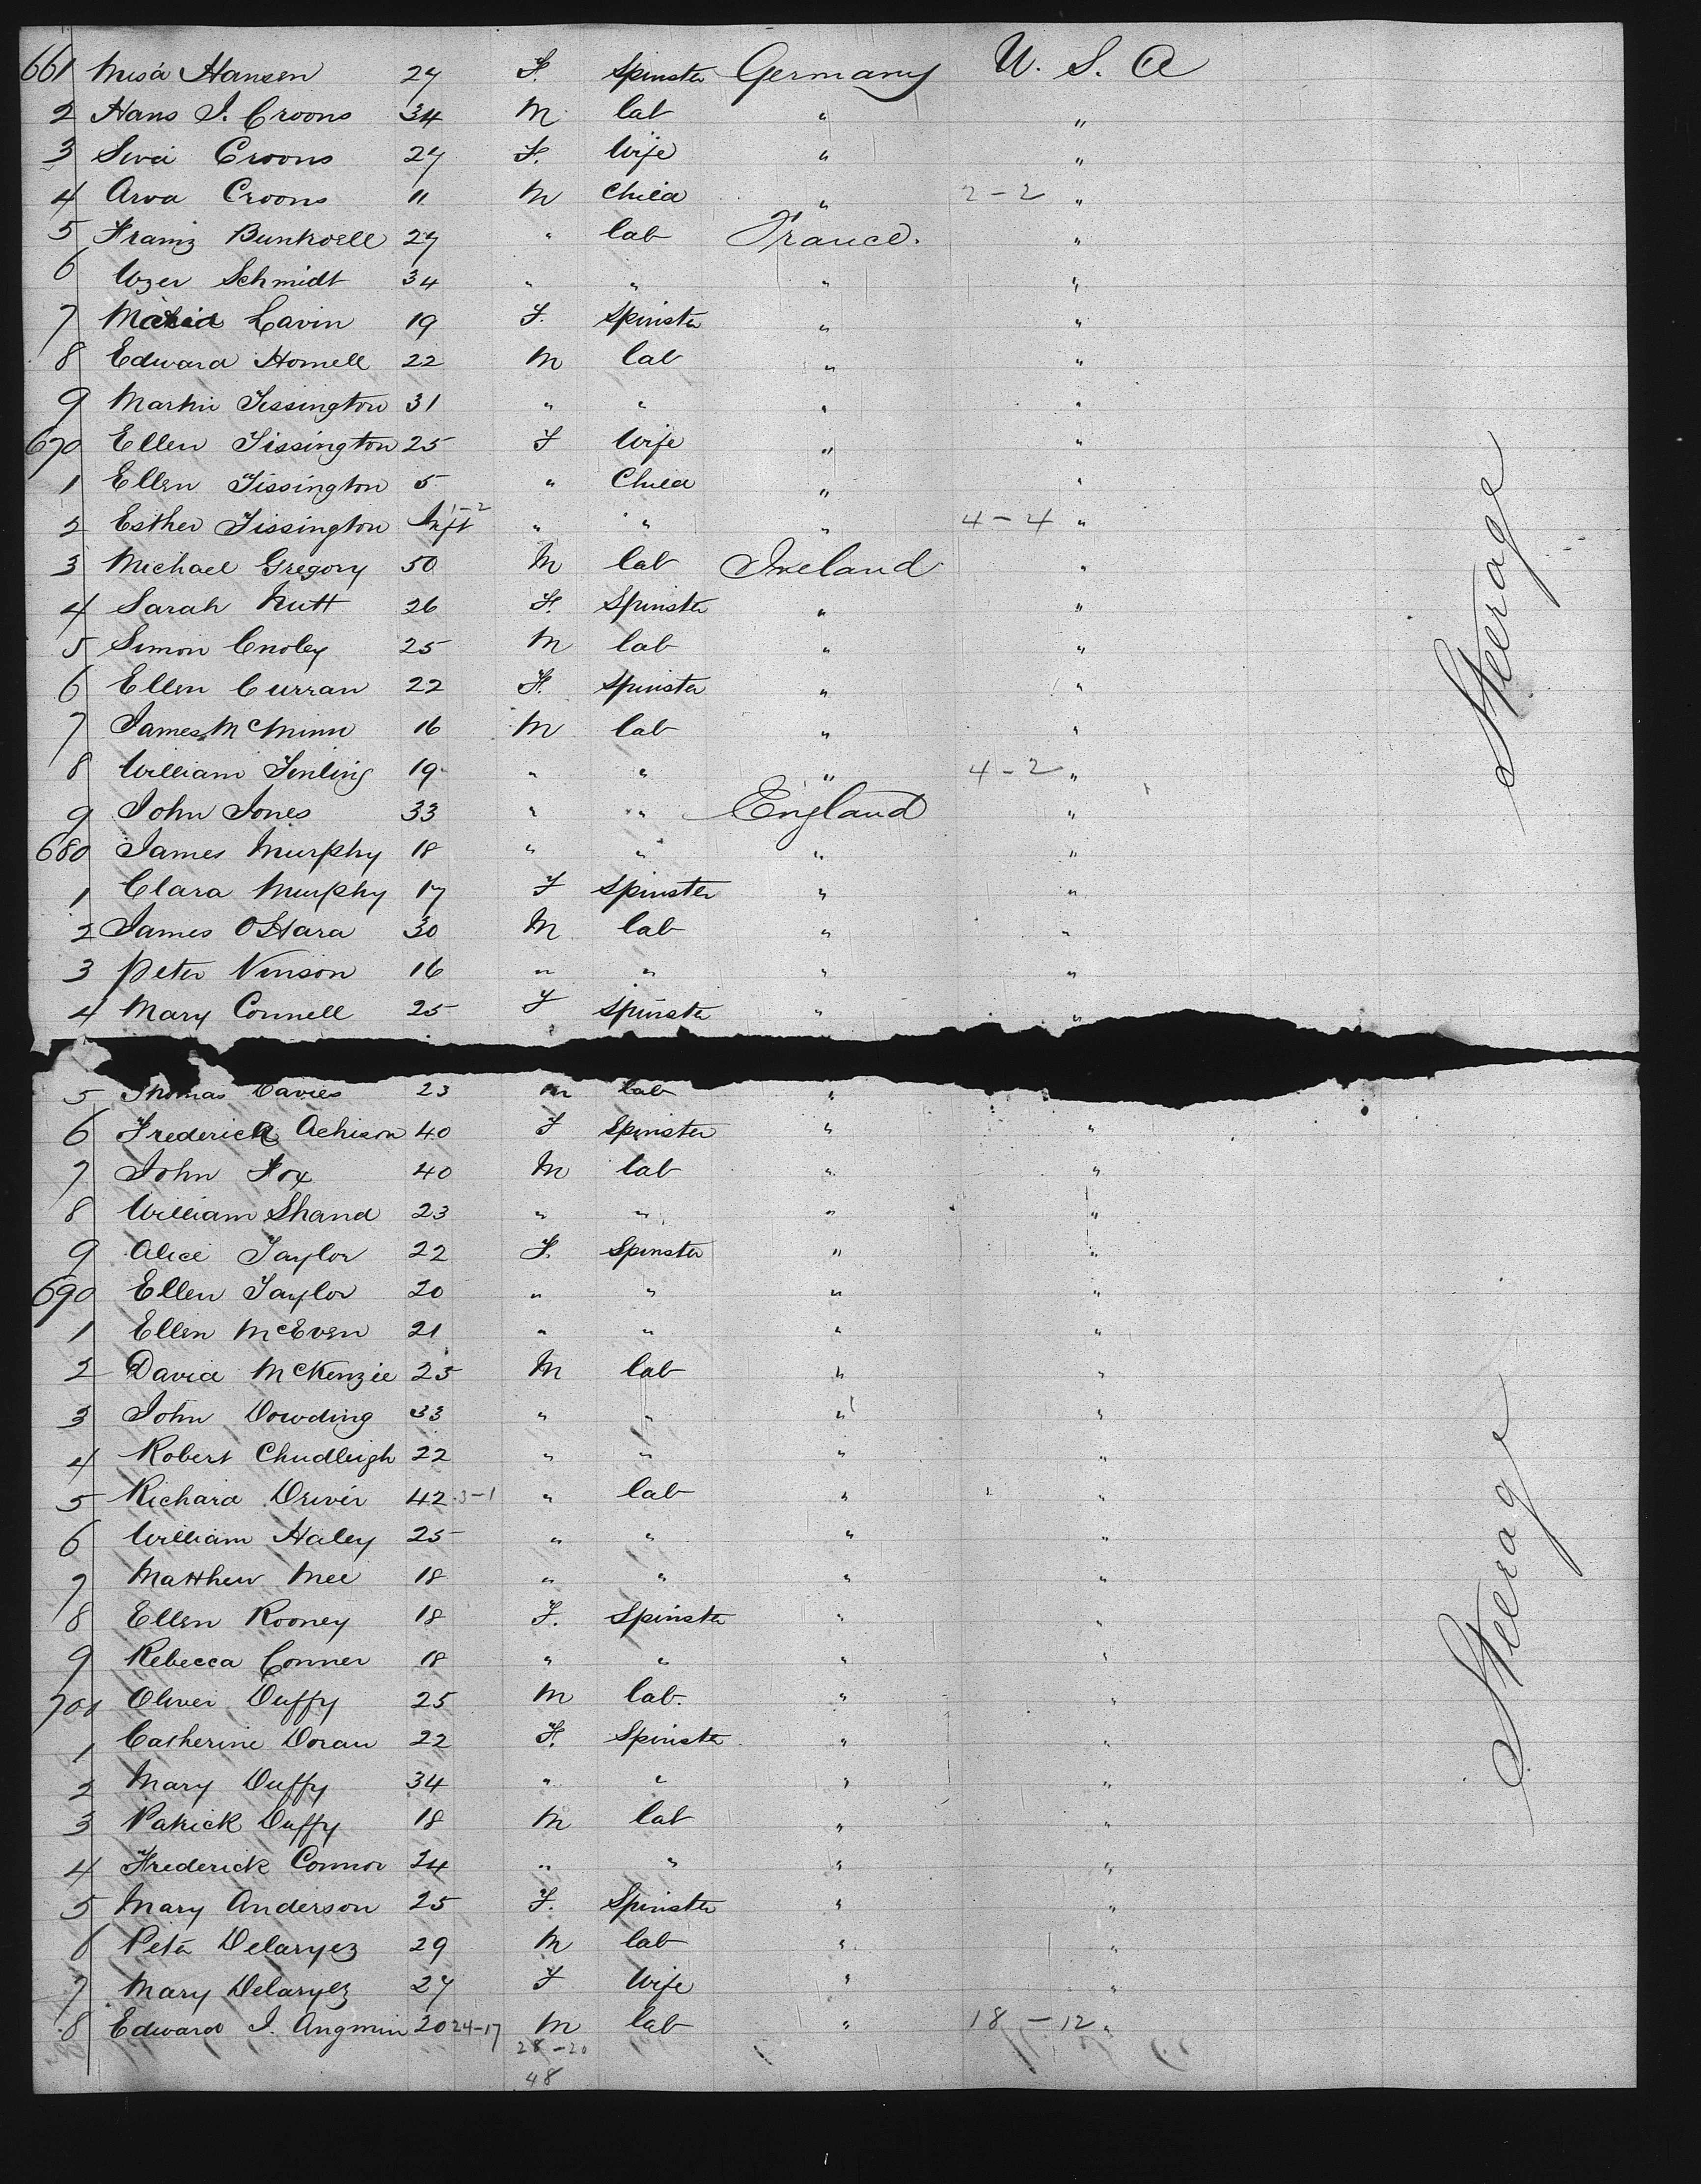 661 Misa Hansen 27 F. Spinster Germany U. S. A
2 Hans J. Croons 34 M lab " "
3 Siva Croons 27 F. Wife " "
4 Arva Croons 11 M Child " 2-2 "
5 Franz Bunkvell 27 " lab France. "
6 Schmidt 34 " " " "
7 Lavin 19 F. Spinster " "
8 Edward Homell 22 M lab " "
9 Martin Tissington 31 " " " "
670 Ellen Tissington 25 F Wife " "
1 Ellen Tissington 5 " Child " "
2 Esther Tissington Inft 1-2 " " " 4-4 "
3 Michael Gregory 50 M lab Ireland "
4 Sarah Nutt 26 F. Spinster " "
5 Simon Cnoley 25 M lab " "
6 Ellen Curran 22 F. Spinster " "
7 James McMinn 16 M lab " "
8 William Tinling 19 " " " 4-2 "
9 John Jones 33 " " England "
680 James Murphy 18 " " " "
1 Clara Murphy 17 F Spinster " "
2 James OHara 30 M lab " "
3 Peter Vinson 16 " " " "
4 Mary Connell 25 F Spinster " "
5 Thomas Davies 23 m lab "
6 Frederica Achison 40 F Spinster " "
7 John Fox 40 M lab " "
8 William Shand 23 " " " "
9 Alice Taylor 22 F. Spinster " "
690 Ellen Taylor 20 " " " "
1 Ellen McEven 21 " " " "
2 David McKenzie 25 M lab " "
3 John Dowding 33 " " " "
4 Robert Chudleigh 22 " " " "
5 Richard Driver 42 3-1 " lab " "
6 William Haley 25 " " " "
7 Matthew Mee 18 " " " "
8 Ellen Rooney 18 F. Spinster " "
9 Rebecca Conner 18 " " " "
700 Oliver Duffy 25 M lab. " "
1 Catherine Doran 22 F. Spinster " "
2 Mary Duffy 34 " " " "
3 Patrick Duffy 18 M lab " "
4 Frederick Connor 24 " " " "
5 Mary Anderson 25 F. Spinster " "
6 Peter Delaryez 29 M lab " "
7 Mary Delaryez 27 F Wife " "
8 Edward J. Angmin 20 24-17 M lab " 18-12 "
28-20
48
Steerage
Steerage